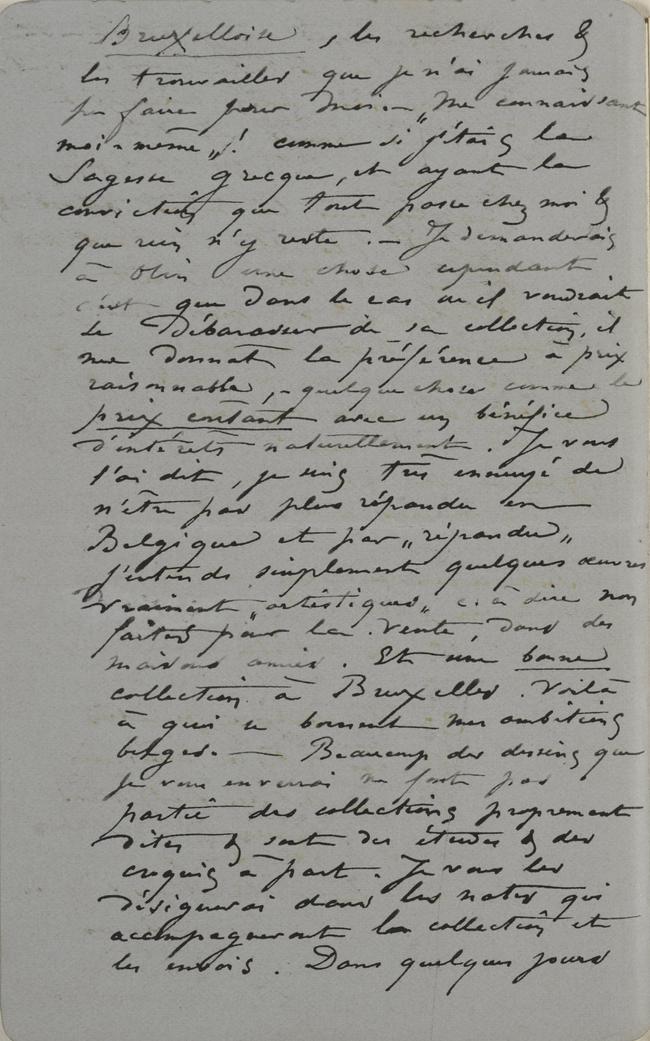 Bruxelloise, les recherches &
les trouvailles que je n'ai jamais
pu faire pour moi. — „Me connaissant
moi-même„! comme si j'étais la
Sagesse grecque, et ayant la
conviction que tout passe chez moi &
que rien n'y reste. — Je demanderais
à Olin une chose cependant
c'est que dans le cas où il voudrait
se débarasser de sa collection, il
me donnat la préférence à prix
raisonnable, - quelque chose comme le
prix coutant avec un bénéfice
d'intérêts naturellement. Je vous
l'ai dit, je suis très ennuyé de
n'être pas plus répandu en
Belgique et par „répandu„
j'entends simplement quelques œuvres
vraiment „artistiques„ c. à dire non
faites pour la vente, dans des
maisons amies. Et une bonne
collection à Bruxelles. Voilà
à quoi se bornent mes ambitions
belges. — Beaucoup des dessins que
je vous enverrai ne font pas
partie des collections proprement
dites & sont des études & des
croquis à part. Je vous les
désignerai dans les notes qui
accompagneront la collection et
les envois. Dans quelques jours